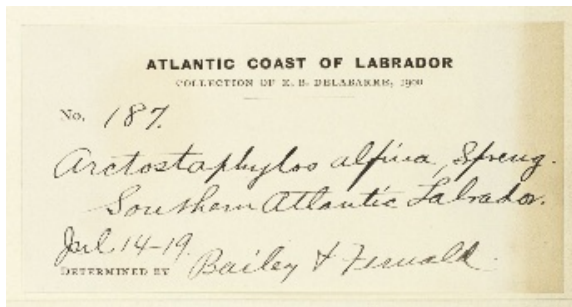 ATLANTIC COAST OF LABRADOR
COLLECTION OF E. B. DELABARRE, 1900
No. 187.
Arctostaphylos alpina, Spreng.
Southern Atlantic Labrador.
Jul 14-19.
DETERMINED BY Bailey & Fernald.